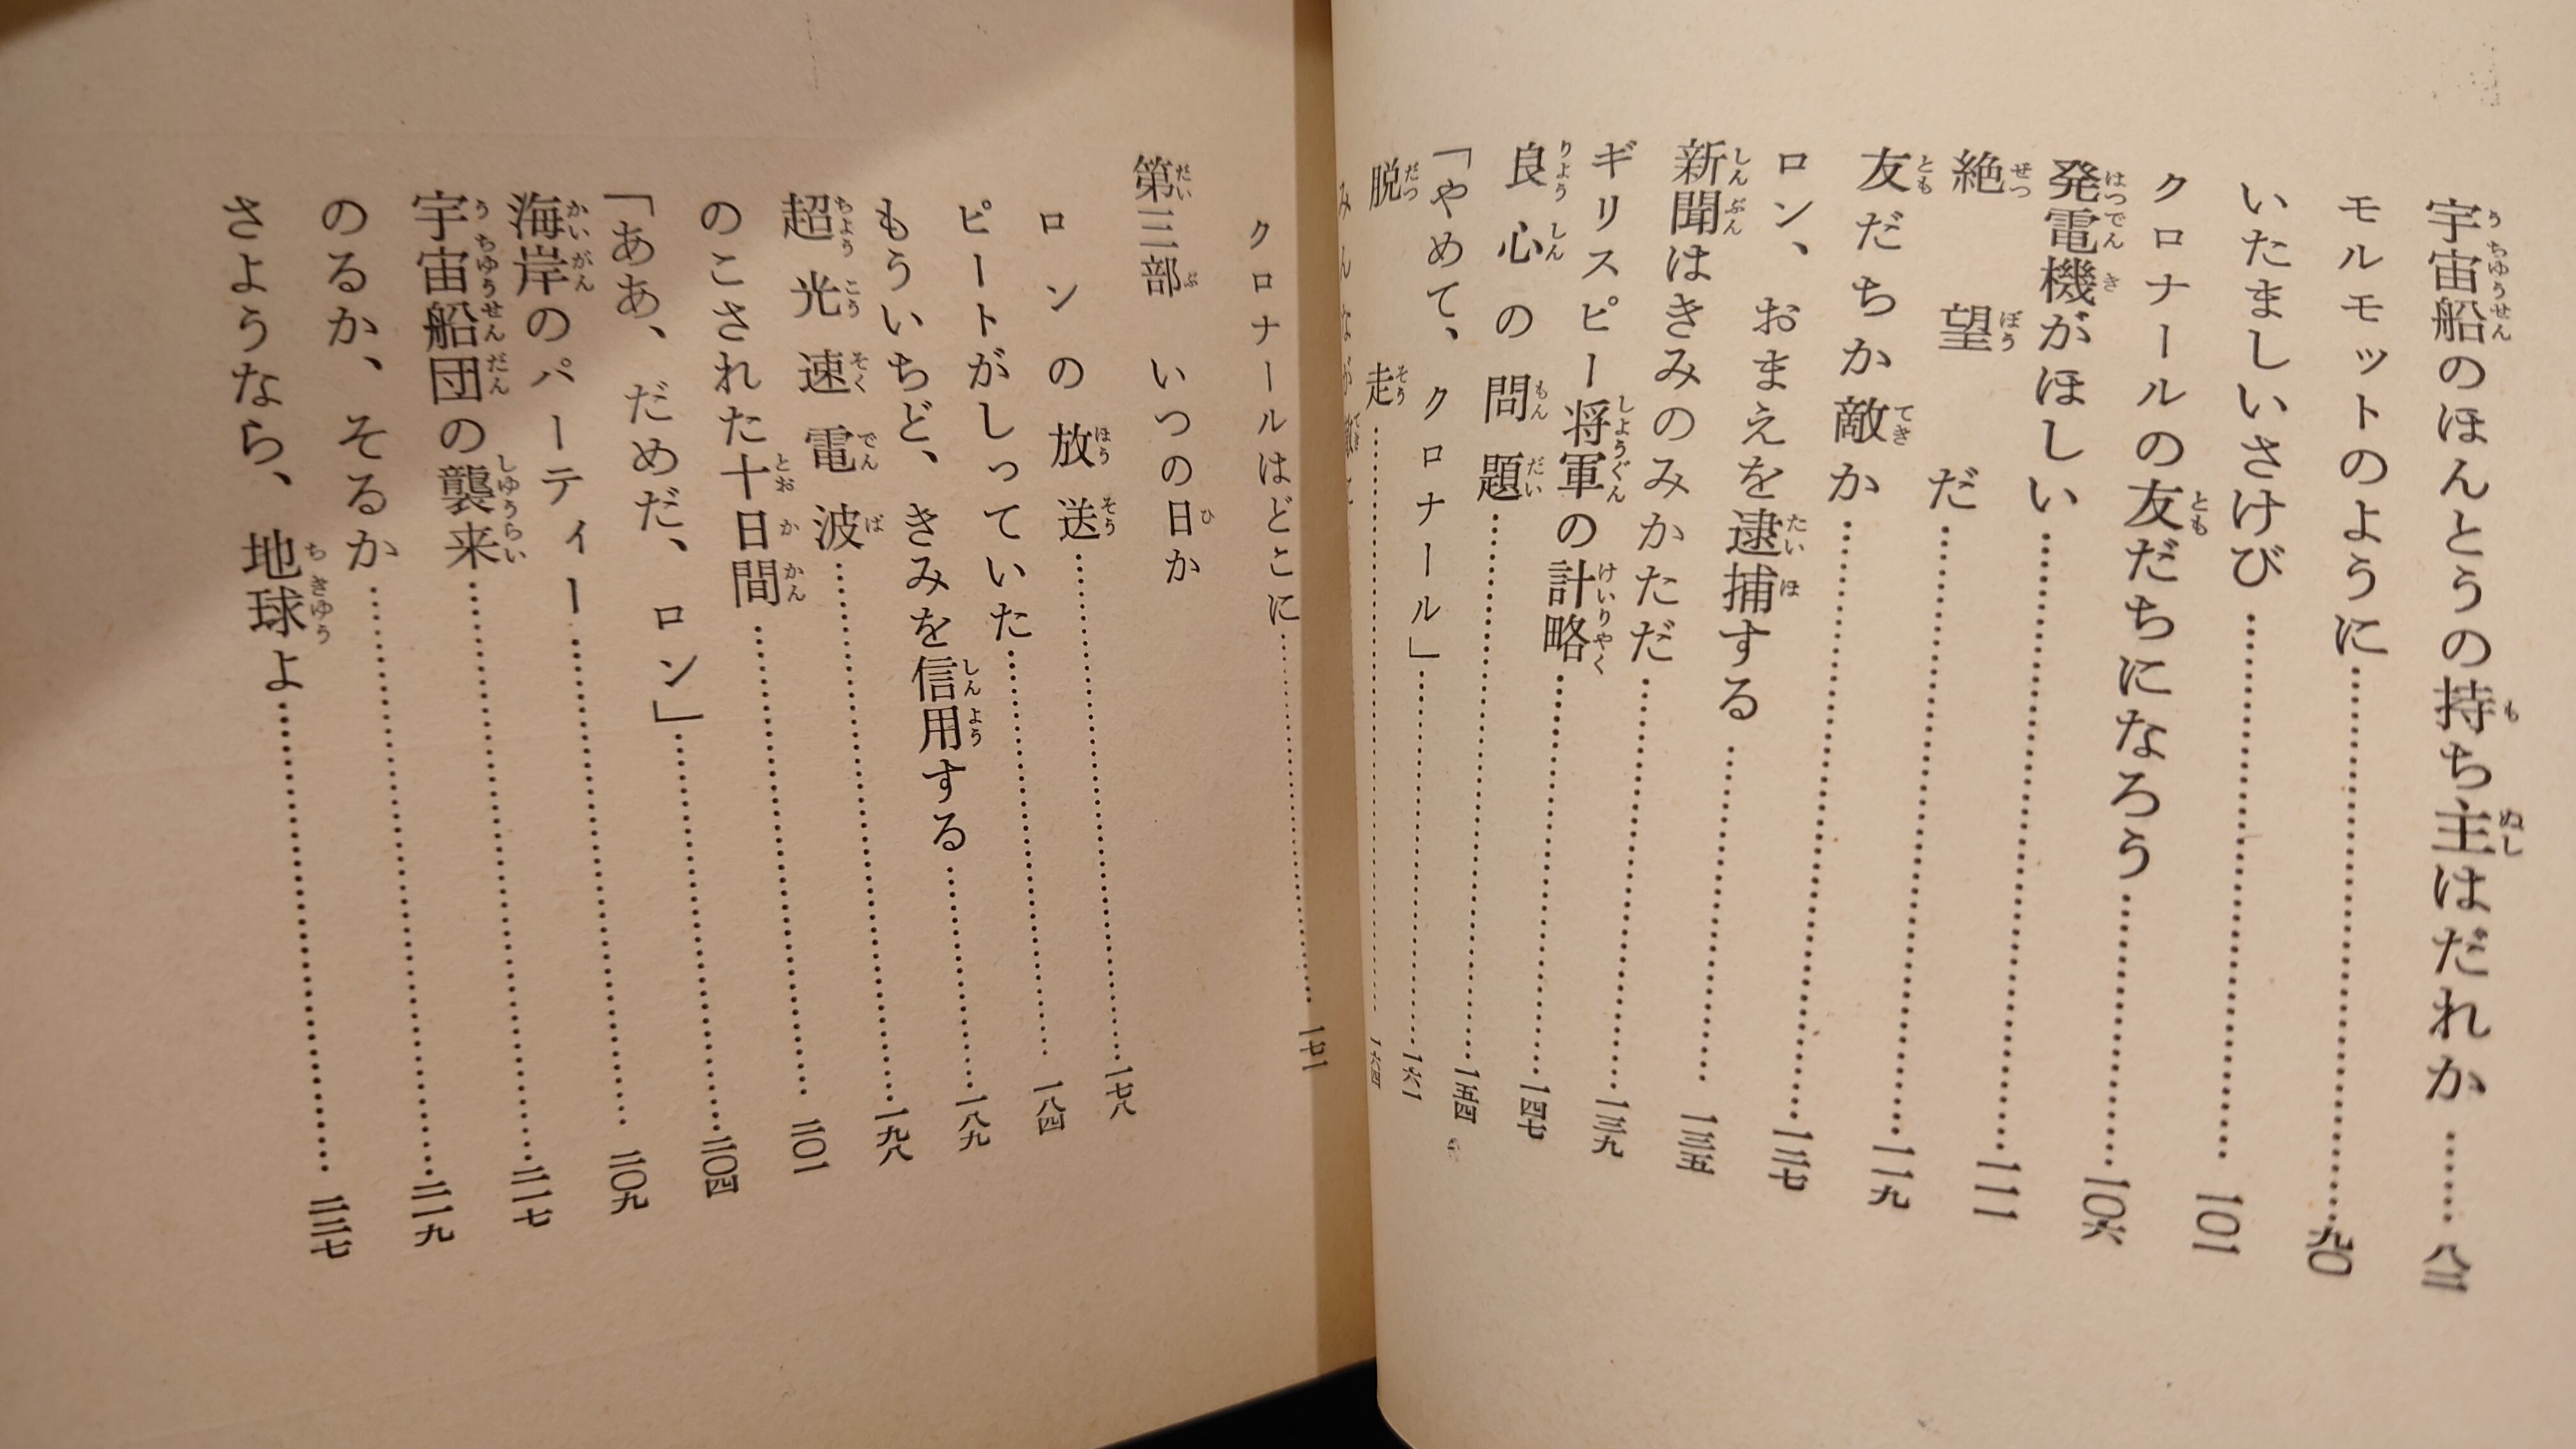 宇宙船のほんとうの持ち主はだれか……八三
モルモットのように……九〇
いたましいさけび……一〇一
クロナールの友だちになろう……一〇六
発電機がほしい……一一一
絶望だ……一一九
友だちか敵か……一二七
ロン、おまえを逮捕する……一三五
新聞はきみのみかただ……一三九
ギリスピー将軍の計略……一四七
良心の問題……一五四
「やめて、クロナール」……一六一
脱走……一六四
みんなが
クロナールはどこに……一七一
第三部 いつの日か
ロンの放送……一七八
ピートがしっていた……一八四
もういちど、きみを信用する……一八九
超光速電波……一九八
のこされた十日間……二〇一
「ああ、だめだ、ロン」……二〇四
海岸のパーティー……二〇九
宇宙船団の襲来……二一七
のるか、そるか……二一九
さようなら、地球よ……二二七